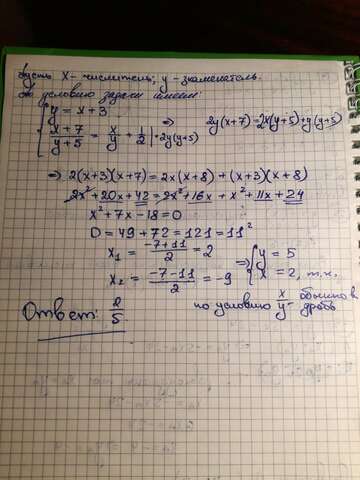 Пусть x - числитель, y - знаменатель.
По условию задачи имеем:
{ y = x + 3
{ (x+7)/(y+5) = x/y + 1/2 | · 2y(y+5) ⇒ 2y(x+7) = 2x(y+5) + y(y+5)
⇒ 2(x+3)(x+7) = 2x(x+8) + (x+3)(x+8)
2x² + 20x + 42 = 2x² + 16x + x² + 11x + 24
x² + 7x - 18 = 0
D = 49 + 72 = 121 = 11²
x₁ = (-7+11)/2 = 2
x₂ = (-7-11)/2 = -9 ⇒ { y = 5
{ x = 2, т.к.
по условию x/y - обыкнов
дробь
Ответ: 2/5